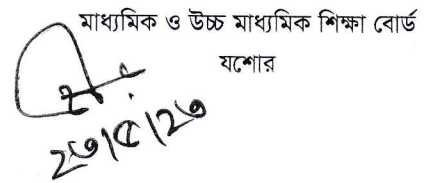 মাধ্যমিক ও উচ্চ মাধ্যমিক শিক্ষা বোর্ড
যশোর
২৩/৫/২৩